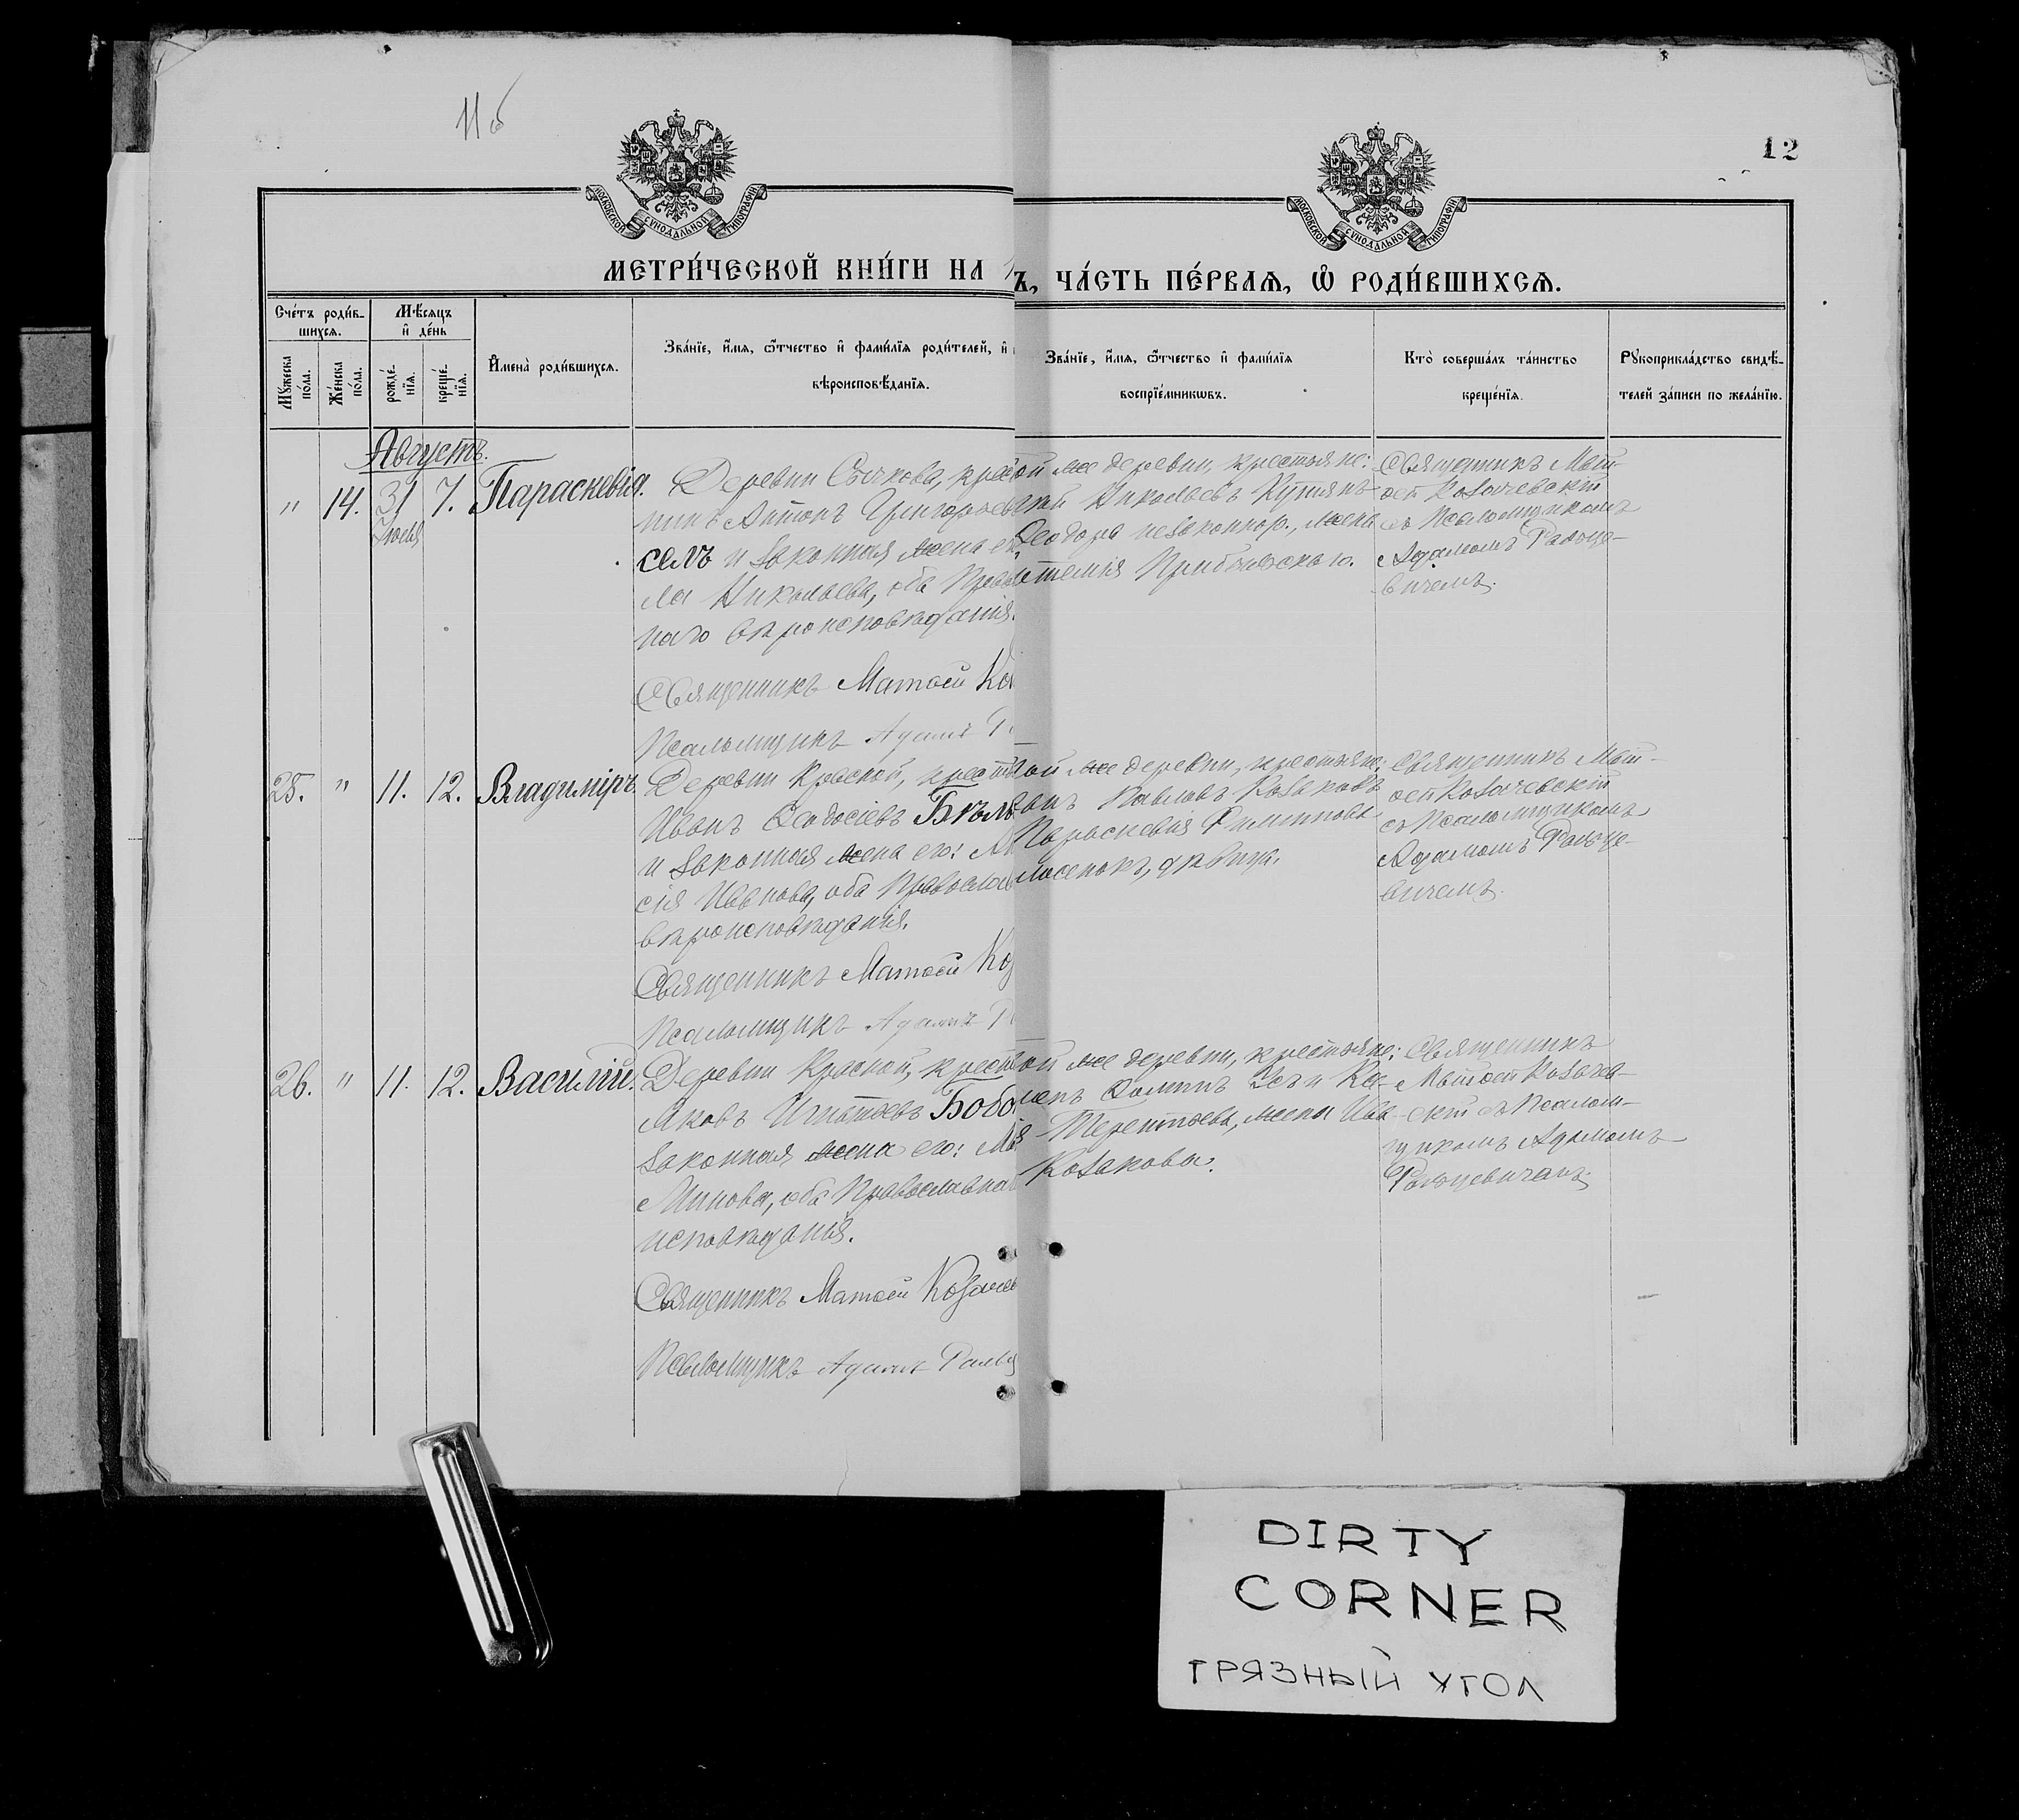 11б
12
МОСКОВСКОЙ СѴНОДАЛЬНОЙ ТИПОГРАФІИ
МОСКОВСКОЙ СѴНОДАЛЬНОЙ ТИПОГРАФІИ
МЕТРИ́ЧЕСКОЙ КНИ́ГИ НА
Ъ, ЧА́СТЬ ПЕ́РВАЯ, Ѡ҆ РОДИ́ВШИХСѦ.
Сче́тъ роди́в-
шихсѧ.
Мѣ́сѧцъ
и҆ де́нь
Мꙋ́жеска
по́ла.
Же́нска
по́ла.
рожде́-
нїѧ.
креще́-
нїѧ.
И҆мена̀ роди́вшихсѧ.
Зва́нїе, и҆́мѧ, ѻ҆́тчество и҆ фами́лїѧ роди́телей, и҆
вѣроисповѣ́данїѧ.
Зва́нїе, и҆́мѧ, ѻ҆́тчество и҆ фами́лїѧ
воспрїе́мникѡвъ.
Кто̀ соверша́лъ та́инство
креще́нїѧ.
Рꙋкоприкла́дство свидѣ́-
телей за́писи по жела́нїю.
Августъ.
" 14. 31 7. Параскевія.
Іюля
Деревни Сычкова, крес
нинъ Антонъ Григорьевъ
селъ и законная жена его
Николаева, оба Право
наго вѣроисповѣданія.
Священникъ Матѳей Ко
Псаломщикъ Адамъ Р
ой же деревни, крестьяне:
Николаевъ
Ѳеодора незаконнор., жена
Священникъ Мат-
ѳей Козачевскій
съ Псаломщикомъ
Адамомъ Ральце-
вичемъ.
25. " 11. 12. Владиміръ.
Деревни Красной, крестья
Иванъ Ѳеодосіевъ Бѣль
и законная жена его:
сія Иванова, оба Православ
вѣроисповѣданія.
Священникъ Матѳей Коз
Псаломщикъ Адамъ Р
ой же деревни, крестьяне:
Павловъ Козаковъ
Параскевія Филиппова
дѣвица.
Священникъ Мат-
ѳей Козачевскій
съ Псаломщикомъ
Адамомъ Ральце-
вичемъ.
26. " 11. 12. Василій.
Деревни Красной, кресть
Яковъ Игнатьевъ Бобо
законная жена его:
Минова, оба Православна
исповѣданія.
Священникъ Матѳей Козаче
Псаломщикъ Адамъ Ральц
ой же деревни, крестьяне:
Ѳоминъ
Терентьева, жена Ива
Козакова.
Священникъ
Матѳей Козачев-
скій съ Псалом-
щикомъ Адамомъ
Ральцевичемъ.
DIRTY
CORNER
ГРЯЗНЫЙ УГОЛ